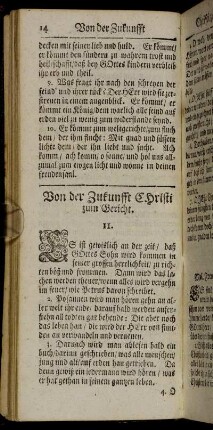 14 Von der Zukunfft
decken mit seiner lieb und huld. Er kömmt/
er kömmt den sündern zu wahrem trost und
heil/schafft/daß bey GOttes kindern verbleib
ihr erb und theil.
9. Was fragt ihr nach dem schreyen der
feind/und ihrer tück? Der HErr wird sie zer-
streuen in einem augenblick. Er kömmt/ er
kömmt ein König/dem warlich alle feind auf
erden viel zu wenig zum widerstande seynd.
10. Er kömmt zum weltgerichte/zum fluch
dem/der ihm flucht: Mit gnad und süssem
lichte dem/der ihn liebt und sucht. Ach
komm/ach komm/o sonne/und hol uns all-
zumal zum ewgen licht und wonne in deinen
freudensaal.
Von der Zukunfft CHristi
zum Gericht.
11.
ES ist gewißlich an der zeit/daß
GOttes Sohn wird kommen in
seiner grossen herrlichkeit/zu rich-
ten böß und frommen. Dann wird das la-
chen werden theuer/wenn alles wird vergehn
im feuer/wie Petrus davon schreibet.
2. Posaunen wird man hören gehn an al-
ler welt ihr ende/darauf bald werden aufer-
stehn all todten gar behende: Die aber noch
das leben han/die wird der HErr von stun-
den an verwandeln und verneuen.
3. Darnach wird man ablesen bald ein
buch/darinn geschrieben/was alle menschen/
jung und alt/auf erden han getrieben. Da
denn gewiß ein jedermann wird hören/was
er hat gethan in seinem gantzen leben.
4. O